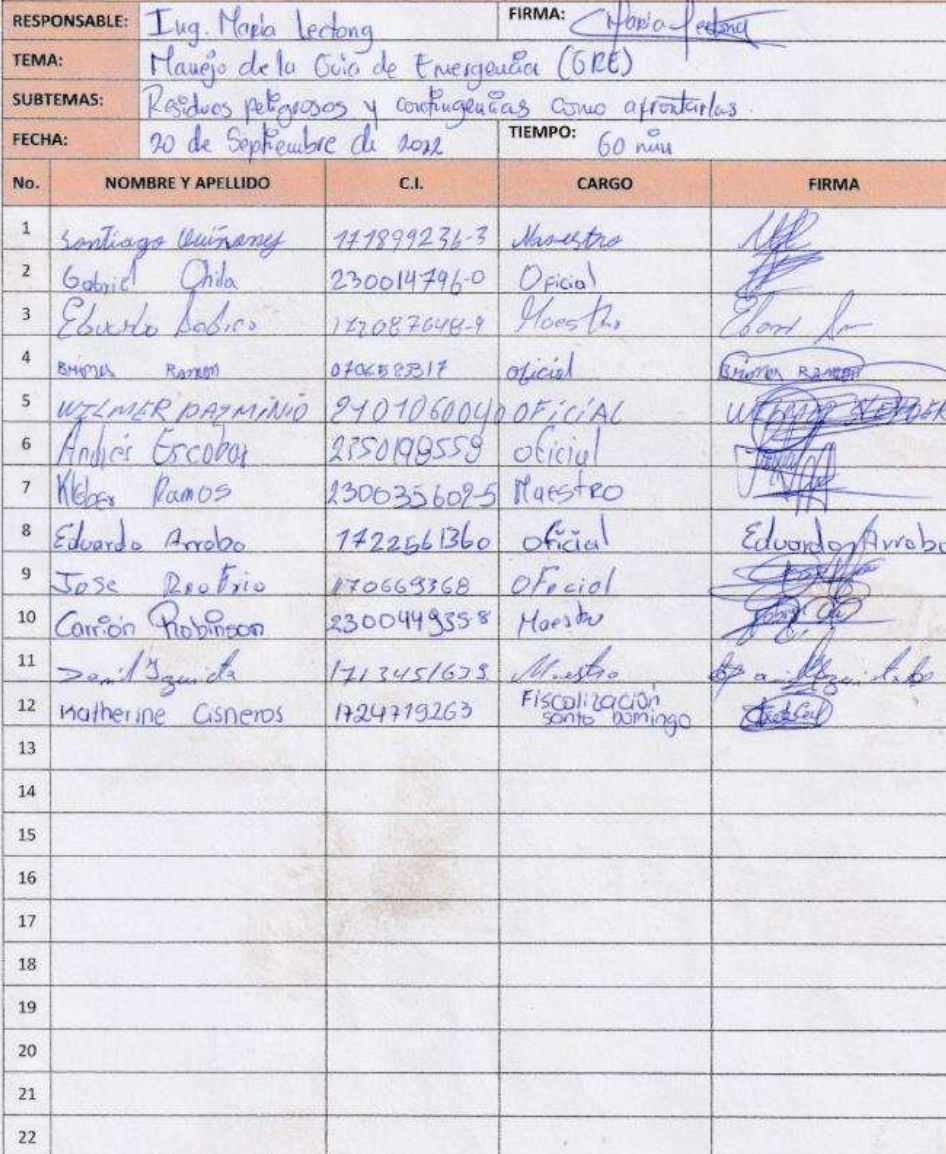 RESPONSABLE: Ing. María Lectong FIRMA: María Lectong
TEMA: Manejo de la Guia de Emergencia (GRE)
SUBTEMAS: Residuos peligrosos y contingencias como afrontarlas.
FECHA: 20 de Septiembre de 2022 TIEMPO: 60 min
No. NOMBRE Y APELLIDO C.I. CARGO FIRMA
1 Santiago 171899236-3 Maestro
2 Gabriel Chila 230014796-0 Oficial
3 Maestro
4 Ramon oficial Ramon
5 WILMER PAZMINIO 2101060040 OFICIAL
6 Andrés Escobar 2350199559 oficial
7 Kleber Ramos 230035602-5 Maestro
8 Eduardo Arrobo 1722561360 oficial Eduardo Arrobo
9 Jose 170669368 Oficial
10 Carrión Robinson 2300449358 Maestro
11 Maestro
12 Katherine Cisneros 1724719263 Fiscalización
santo Domingo
13
14
15
16
17
18
19
20
21
22